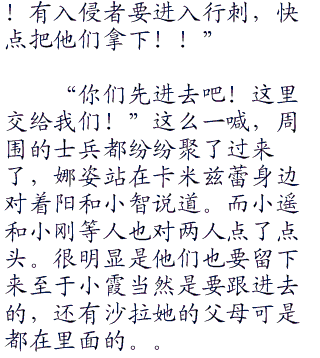 ！有入侵者要进入行刺，快
点把他们拿下！！”
“你们先进去吧！这里
交给我们！”这么一喊，周
围的士兵都纷纷聚了过来
了，娜姿站在卡米兹蕾身边
对着阳和小智说道。而小遥
和小刚等人也对两人点了点
头。很明显是他们也要留下
来至于小霞当然是要跟进去
的，还有沙拉她的父母可是
都在里面的。。